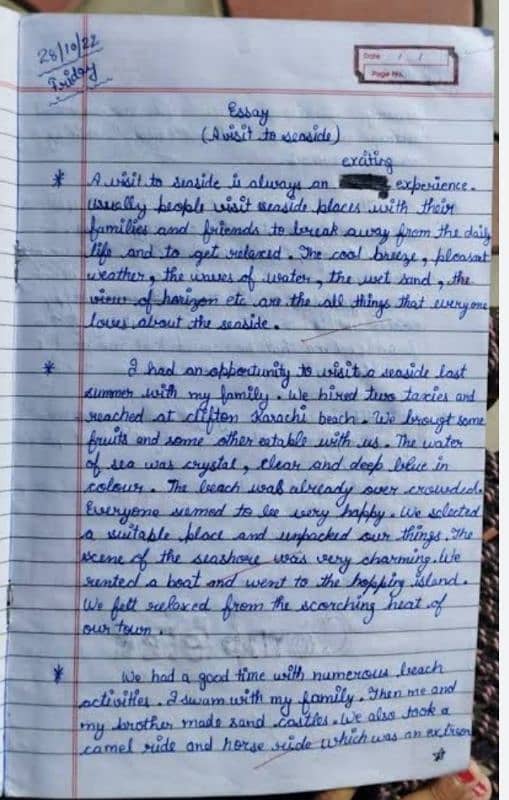 28/10/22
Friday
Date / /
Page No.
Essay
(A visit to seaside)
exciting
* A visit to seaside is always an experience.
Usually people visit seaside places with their
families and friends to break away from the daily
life and to get relaxed. The cool breeze, pleasant
weather, the waves of water, the wet sand, the
view of horizon etc are the all things that everyone
loves about the seaside.
* I had an opportunity to visit a seaside last
summer with my family. We hired two taxies and
reached at clifton Karachi beach. We brougt some
fruits and some other eatable with us. The water
of sea was crystal, clear and deep blue in
colour. The beach was already over crowded.
Everyone seemed to be very happy. We selected
a suitable place and unpacked our things. The
scene of the seashore was very charming. We
rented a boat and went to the hopping island.
We felt relaxed from the scorching heat of
our town.
* We had a good time with numerous beach
activities. I swam with my family. Then me and
my brother made sand castles. We also took a
camel ride and horse ride which was an extreem